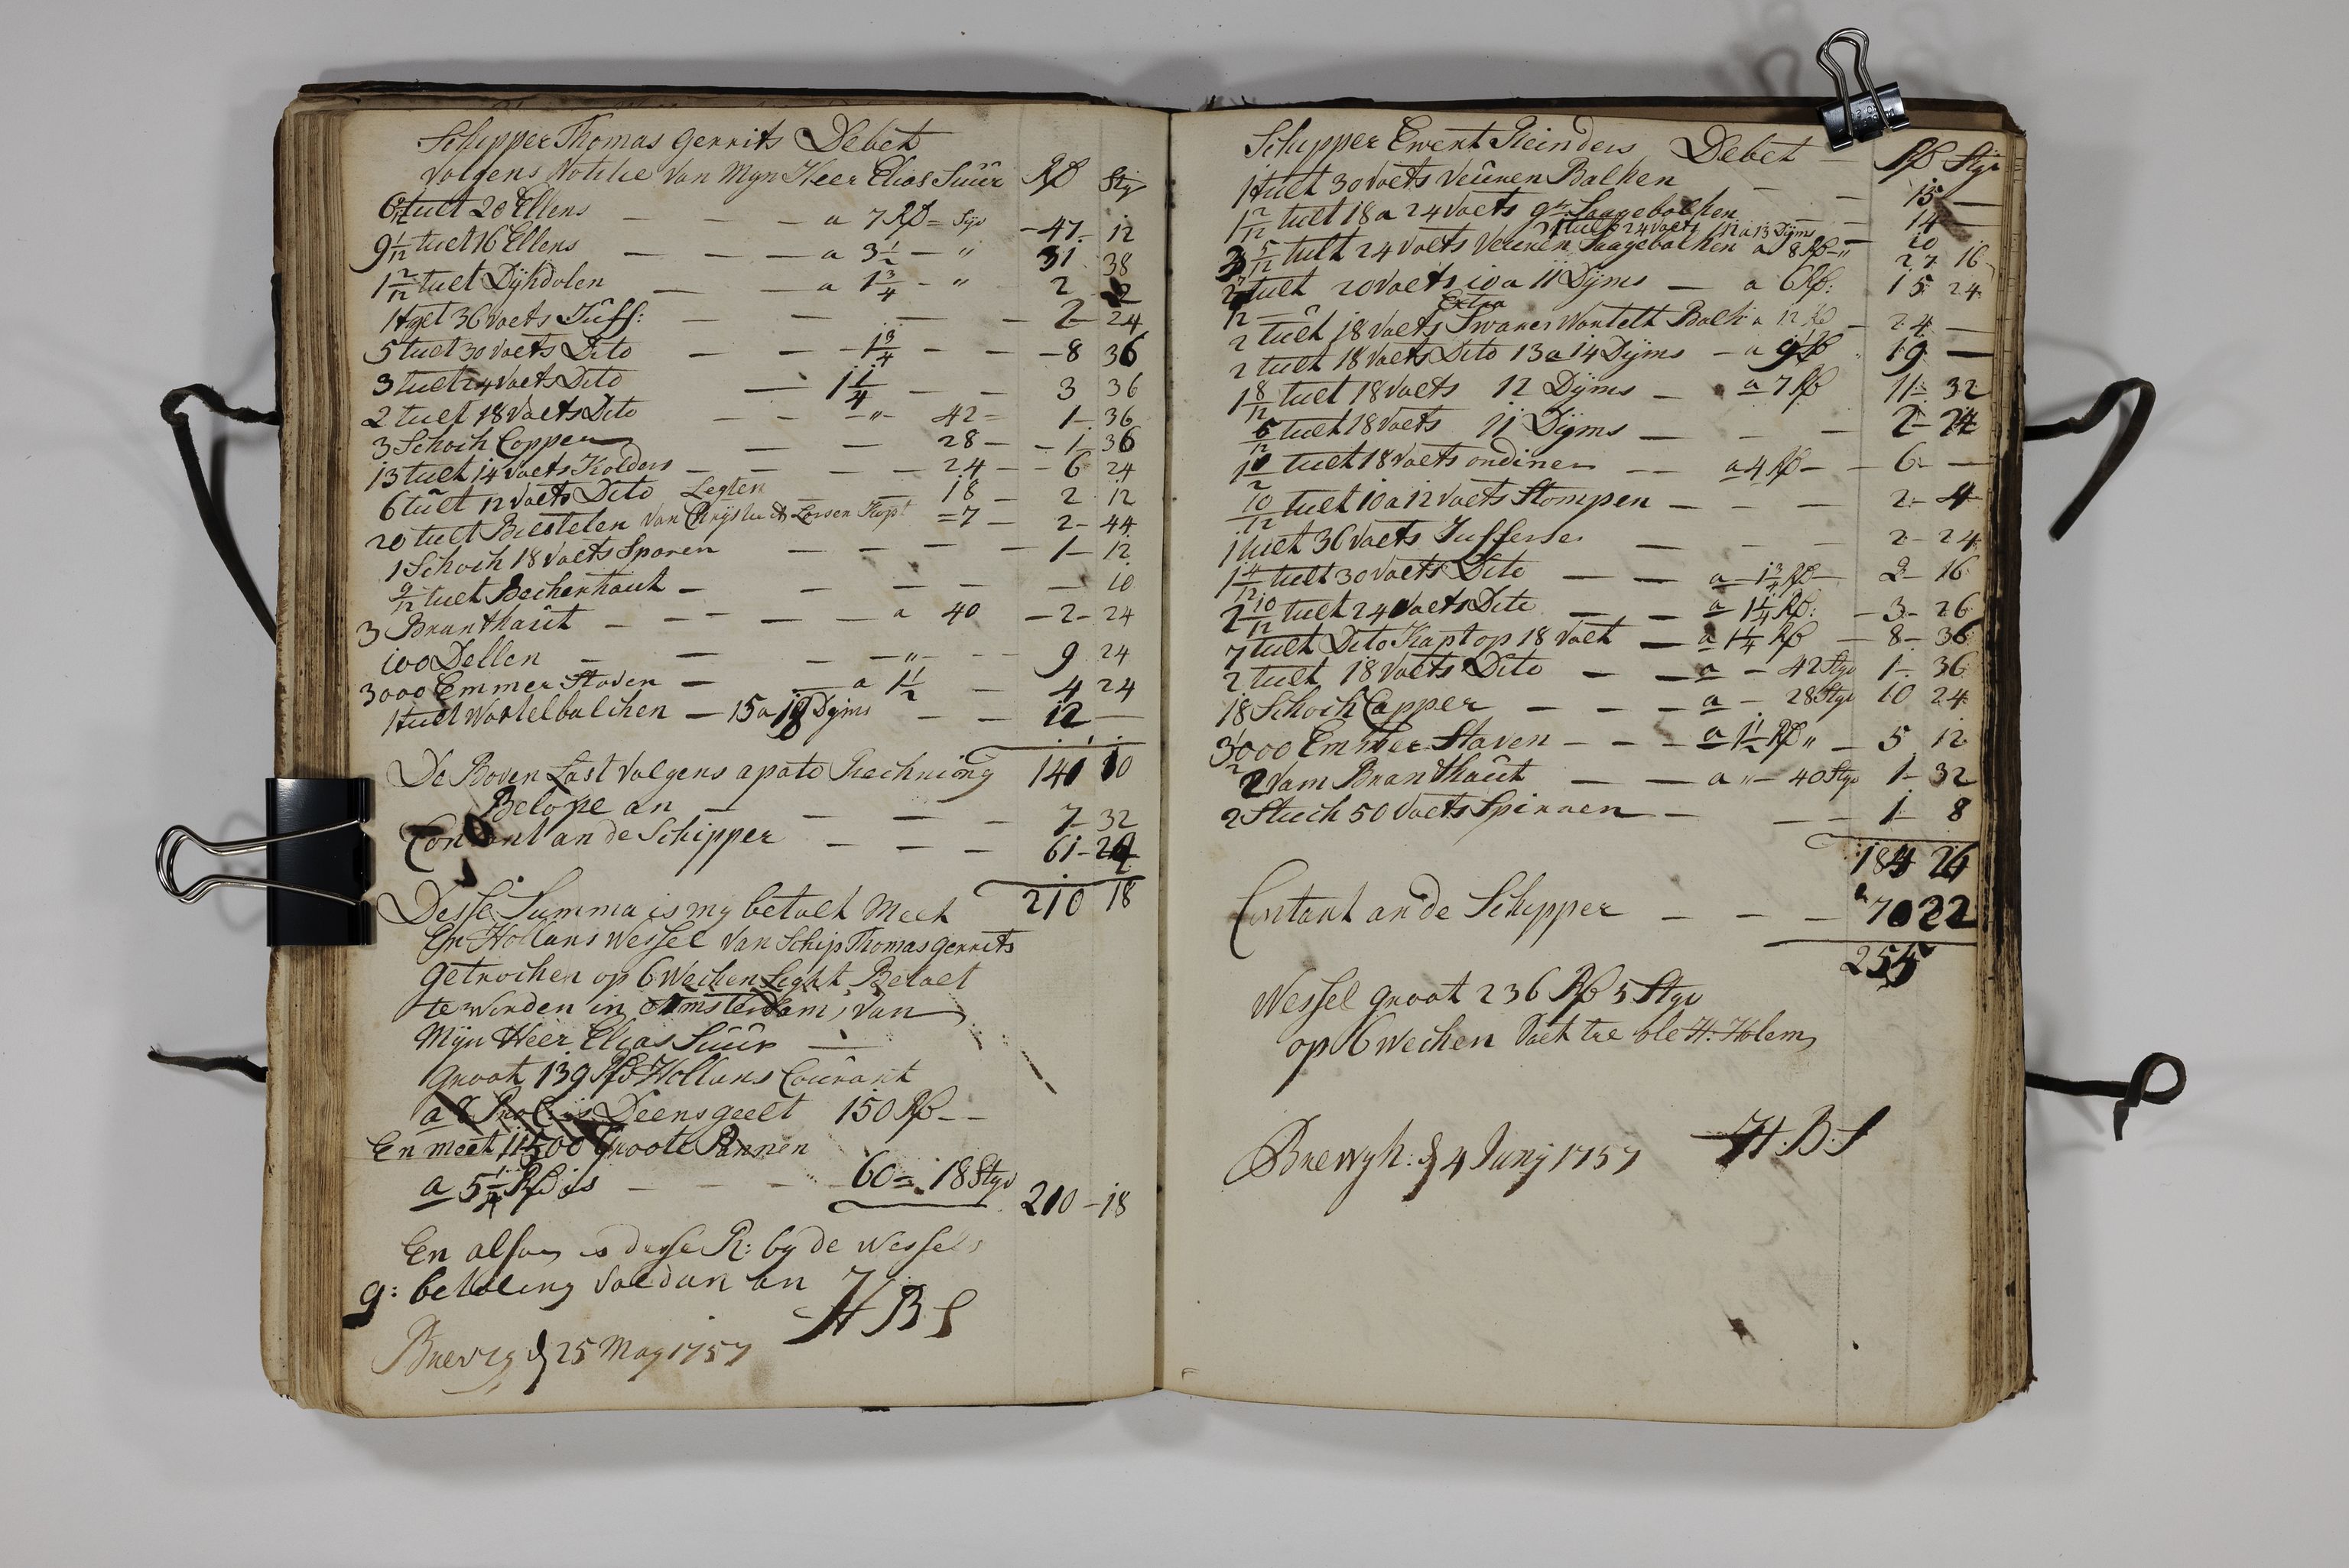 Schipper Thomas Gerrits Debet
Volgens Notitie Van Mijn Heer Elias Suur Rd Stgr
tult 20 Ellens — — — a 7 Rd = Sgr — 47 — 12
9 1/12 tult 16 Ellens — — — a 3 1/2 — " 31 38
1 2/12 tult Dijkdolen — — a 1 3/4 — " 2 2
36 Voets Juff: — — — — — 2 — 24
5 tult 30 Voets Dito — — — 1 3/4 — — — 8 36
3 tult 24 Voets Dito — 1 1/4 — — 3 36
2 tult 18 Voets Dito — — — " — 42 = 1 — 36
3 Schock Copper — — — 28 — — 1 — 36
13 tult 14 Voets Kolders — — — — 24 — — 6 24
6 tult 12 Voets Dito Legten — 18 — 2 12
20 tult Van = 7 — 2 — 44
1 Schock 18 Voets Sporen — — — — — 1 — 12
9/12 tult Beckenhout — — — — — 10
3 Brunthout — — — — — a 40 — 2 — 24
100 Dellen — — — — " — — — 9 24
3000 Emmer Staven — — a 1 1/2 — 4 24
1 tult Wortelbalcken — 15 a Dijms — — 12 —
De Boven Last Volgens apato Rechning 141 10
Belope an — — — — 7 — 32
Contant an de Schipper — — — 61 — 24
Desse Summa is my betalt Meet 210 18
En Hollans Wessel Van Schip Thomas Gerrits
Getrocken op 6 Wecken Seght Betaelt
te Worden in Amsterdam, Van
Mijn Heer Elias Suur —
Groot 139 Rd Hollans Courant
a 8 Deens geelt 150 Rd — —
En meet 11500 Groote Pannen
a 5 1/4 Rd is — — — — 60 = 18 Stgr 210 — 18
En alsoo is desse R: by de Wessels
g: betaling Voldan an H B S
Brevig d 25 May 1757
Schipper Ewert Reinders Debet — Rd Stgr
1 tult 30 Voets Veuren Balken — — 15 —
1 2/12 tult 18 a 24 Voets gr: Saagebalken — — 14 —
1 tult 24 Voets 12 a 13 Dijms — 10
3 5/12 tult 24 Voets Veuren Saagebalken a 8 Rd — " 27 16
2 7/12 tult 20 Voets 10 a 11 Dijms — a 6 Rd: 15 24
Extra
2 tult 18 Voets Swaner Wortelt Balk a 12 Rd — 24 —
2 tult 18 Voets Dito 13 a 14 Dijms — a 9 1/2 Rd 19 —
1 8/12 tult 18 Voets 12 Dijms — a 7 Rd 11 — 32
6/12 tult 18 Voets 11 Dijms — — — 2 — 24
tult 18 Voets ondiner — — a 4 Rd — — 6 —
10/12 tult 10 a 12 Voets Stompen — — — 2 — 4
1 tult 36 Voets Jufferse — — — 2 — 24
1 4/12 tult 30 Voets Dito — — a — 1 3/4 Rd — 2 — 16
2 10/12 tult 24 Voets Dito — — a — 1 1/4 Rd: — 3 — 26
7 tult Dito Kapt op 18 Voet — a 1 1/4 Rd — 8 — 36
2 tult 18 Voets Dito — — a — 42 Stgr 1 — 36
18 Schock Capper — — — a — 28 Stgr 10 24
3 1/2 000 Emmer Staven — — — a 1 1/2 Rd " — 5 12
2 Vam Branthout — — a " — 40 Stgr 1 — 32
2 Stuck 50 Voets Spiraen — — — 1 — 8
184 26
Contant an de Schipper — — — 70 22
255
Wessel groot 236 Rd 5 Stgr
op 6 Wecken ole H. Holem
Brewyk: d 4 Juny 1757 H. B. S